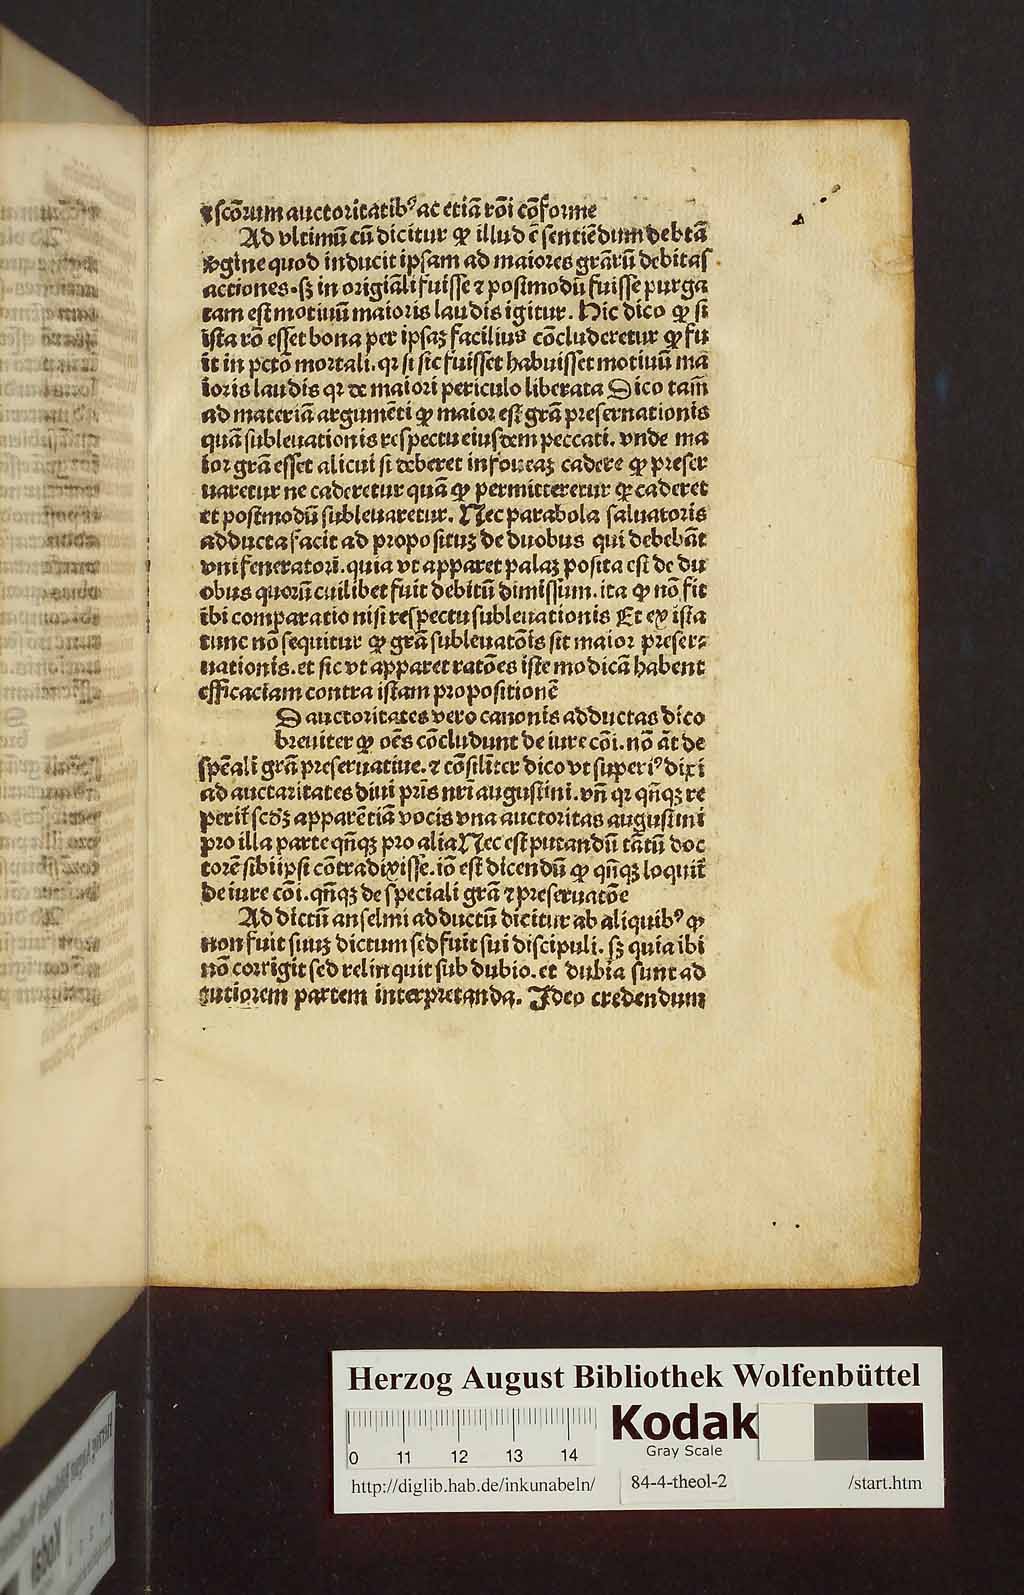 ⁊ scōrum auctoritatibꝰ ac etiā rōi cōforme
Ad vltimū cū dicitur ꝙ illud ē sentiēdum de btā
v̄gine quod inducit ipsam ad maiores grārū debitas
actiones. sꝫ in origiāli fuisse ⁊ postmodū fuisse purga
tam est motiuū maioris laudis igitur. Hic dico ꝙ si
ista rō esset bona per ipsaꝫ facilius cōcluderetur ꝙ fu
it in pctō mortali. qꝛ si sic fuisset habuisset motiuū ma
ioris laudis qꝛ de maiori periculo liberata Dico tam̄
ad materiā argumēti ꝙ maior est grā preseruationis
quā subleuationis respectu eiusdem peccati. vnde ma
ior grā esset alicui si deberet in foueaꝫ cadere ꝙ preser
uaretur ne caderetur quā ꝙ permitteretur ꝙ caderet
et postmodū subleuaretur. Nec parabola saluatoris
adducta facit ad propositūꝫ de duobus qui debebāt
vni feneratori. quia vt apparet palaꝫ posita est de du
obus quorū cuilibet fuit debitū dimissum. ita ꝙ nō fit
ibi comparatio nisi respectu subleuationis Et ex ista
tunc nō sequitur ꝙ grā subleuatōis sit maior preser⸗
uationis. et sic vt apparet ratōes iste modicā habent
efficaciam contra istam propositionē
D auctoritates vero canonis adductas dico
breuiter ꝙ oēs cōcludunt de iure cōi. nō āt de
spēali grā preseruatiue. ⁊ cōsilīter dico vt superiꝰ dixi
ad auctaritates diui pr̄is nr̄i augustini. vn̄ qꝛ qn̄qꝫ re
perit᷑ scd̄ꝫ apparētiā vocis vna auctoritas augustini
pro illa parte qn̄qꝫ pro alia Nec est putandū tātū doc
torē sibiipsi cōtradixisse. iō est dicendū ꝙ qn̄qꝫ loquit᷑
de iure cōi. qn̄qꝫ de speciali grā ⁊ preseruatōe
Ad dictū anselmi adductū dicitur ab aliquibꝰ ꝙ
non fuit suuꝫ dictum sed fuit sui discipuli. sꝫ quia ibi
nō corrigit sed relinquit sub dubio. et dubia sunt ad
tutiorem partem interpretanda. Ideo credendum
Herzog August Bibliothek Wolfenbüttel
0 11 12 13 14
Kodak
Gray Scale
http://diglib.hab.de/inkunabeln/
84-4-theol-2
/start.htm